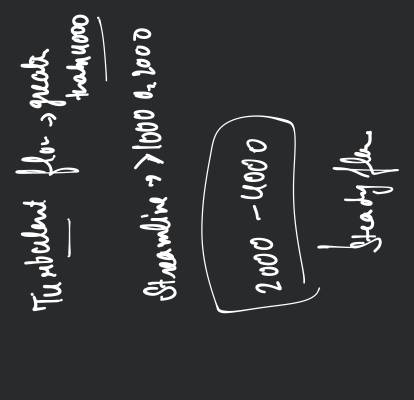 Turbulent flow → greater
than 4000
Streamline → > 1000 or 2000
2000 - 4000
Steady flow